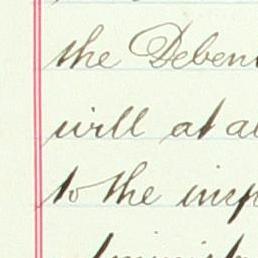 the Deben
will at al
to the insp